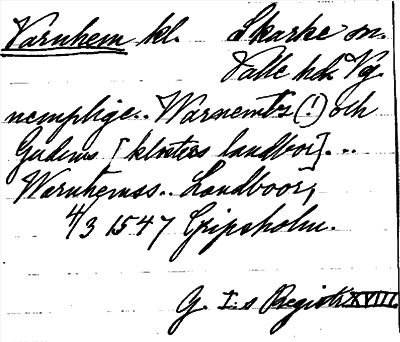 Varnhem kl. Skarke sn.
Valle hd. Vg.
nemplige.. Warnemts (!) och
Gudems [klosters landbor]...
Warnhemss.. Landboor,
4/3 1547 Gripsholm.
G. I:s Registr XVIII